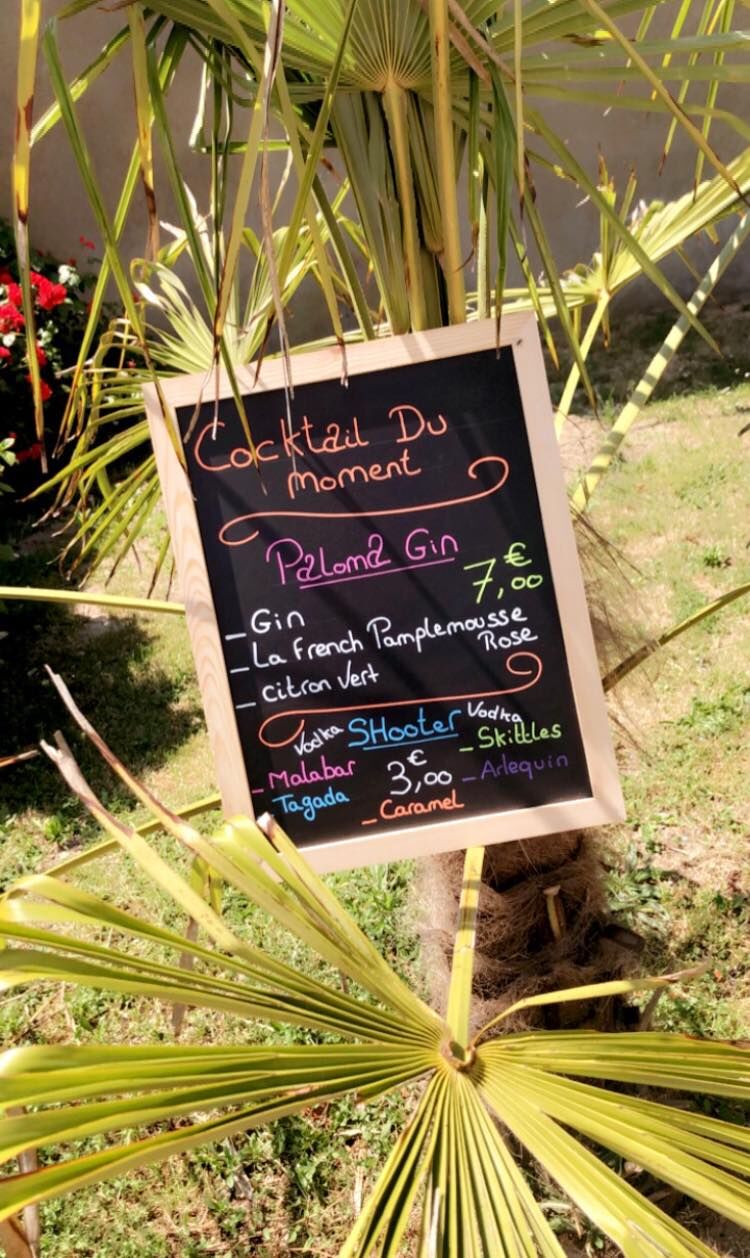 Cocktail Du
moment
Paloma Gin
7,00€
- Gin
- La French Pamplemousse
Rose
- citron vert
Vodka SHooter Vodka
- Malabar
3,00€
- Skittles
Tagada
- Arlequin
- Caramel